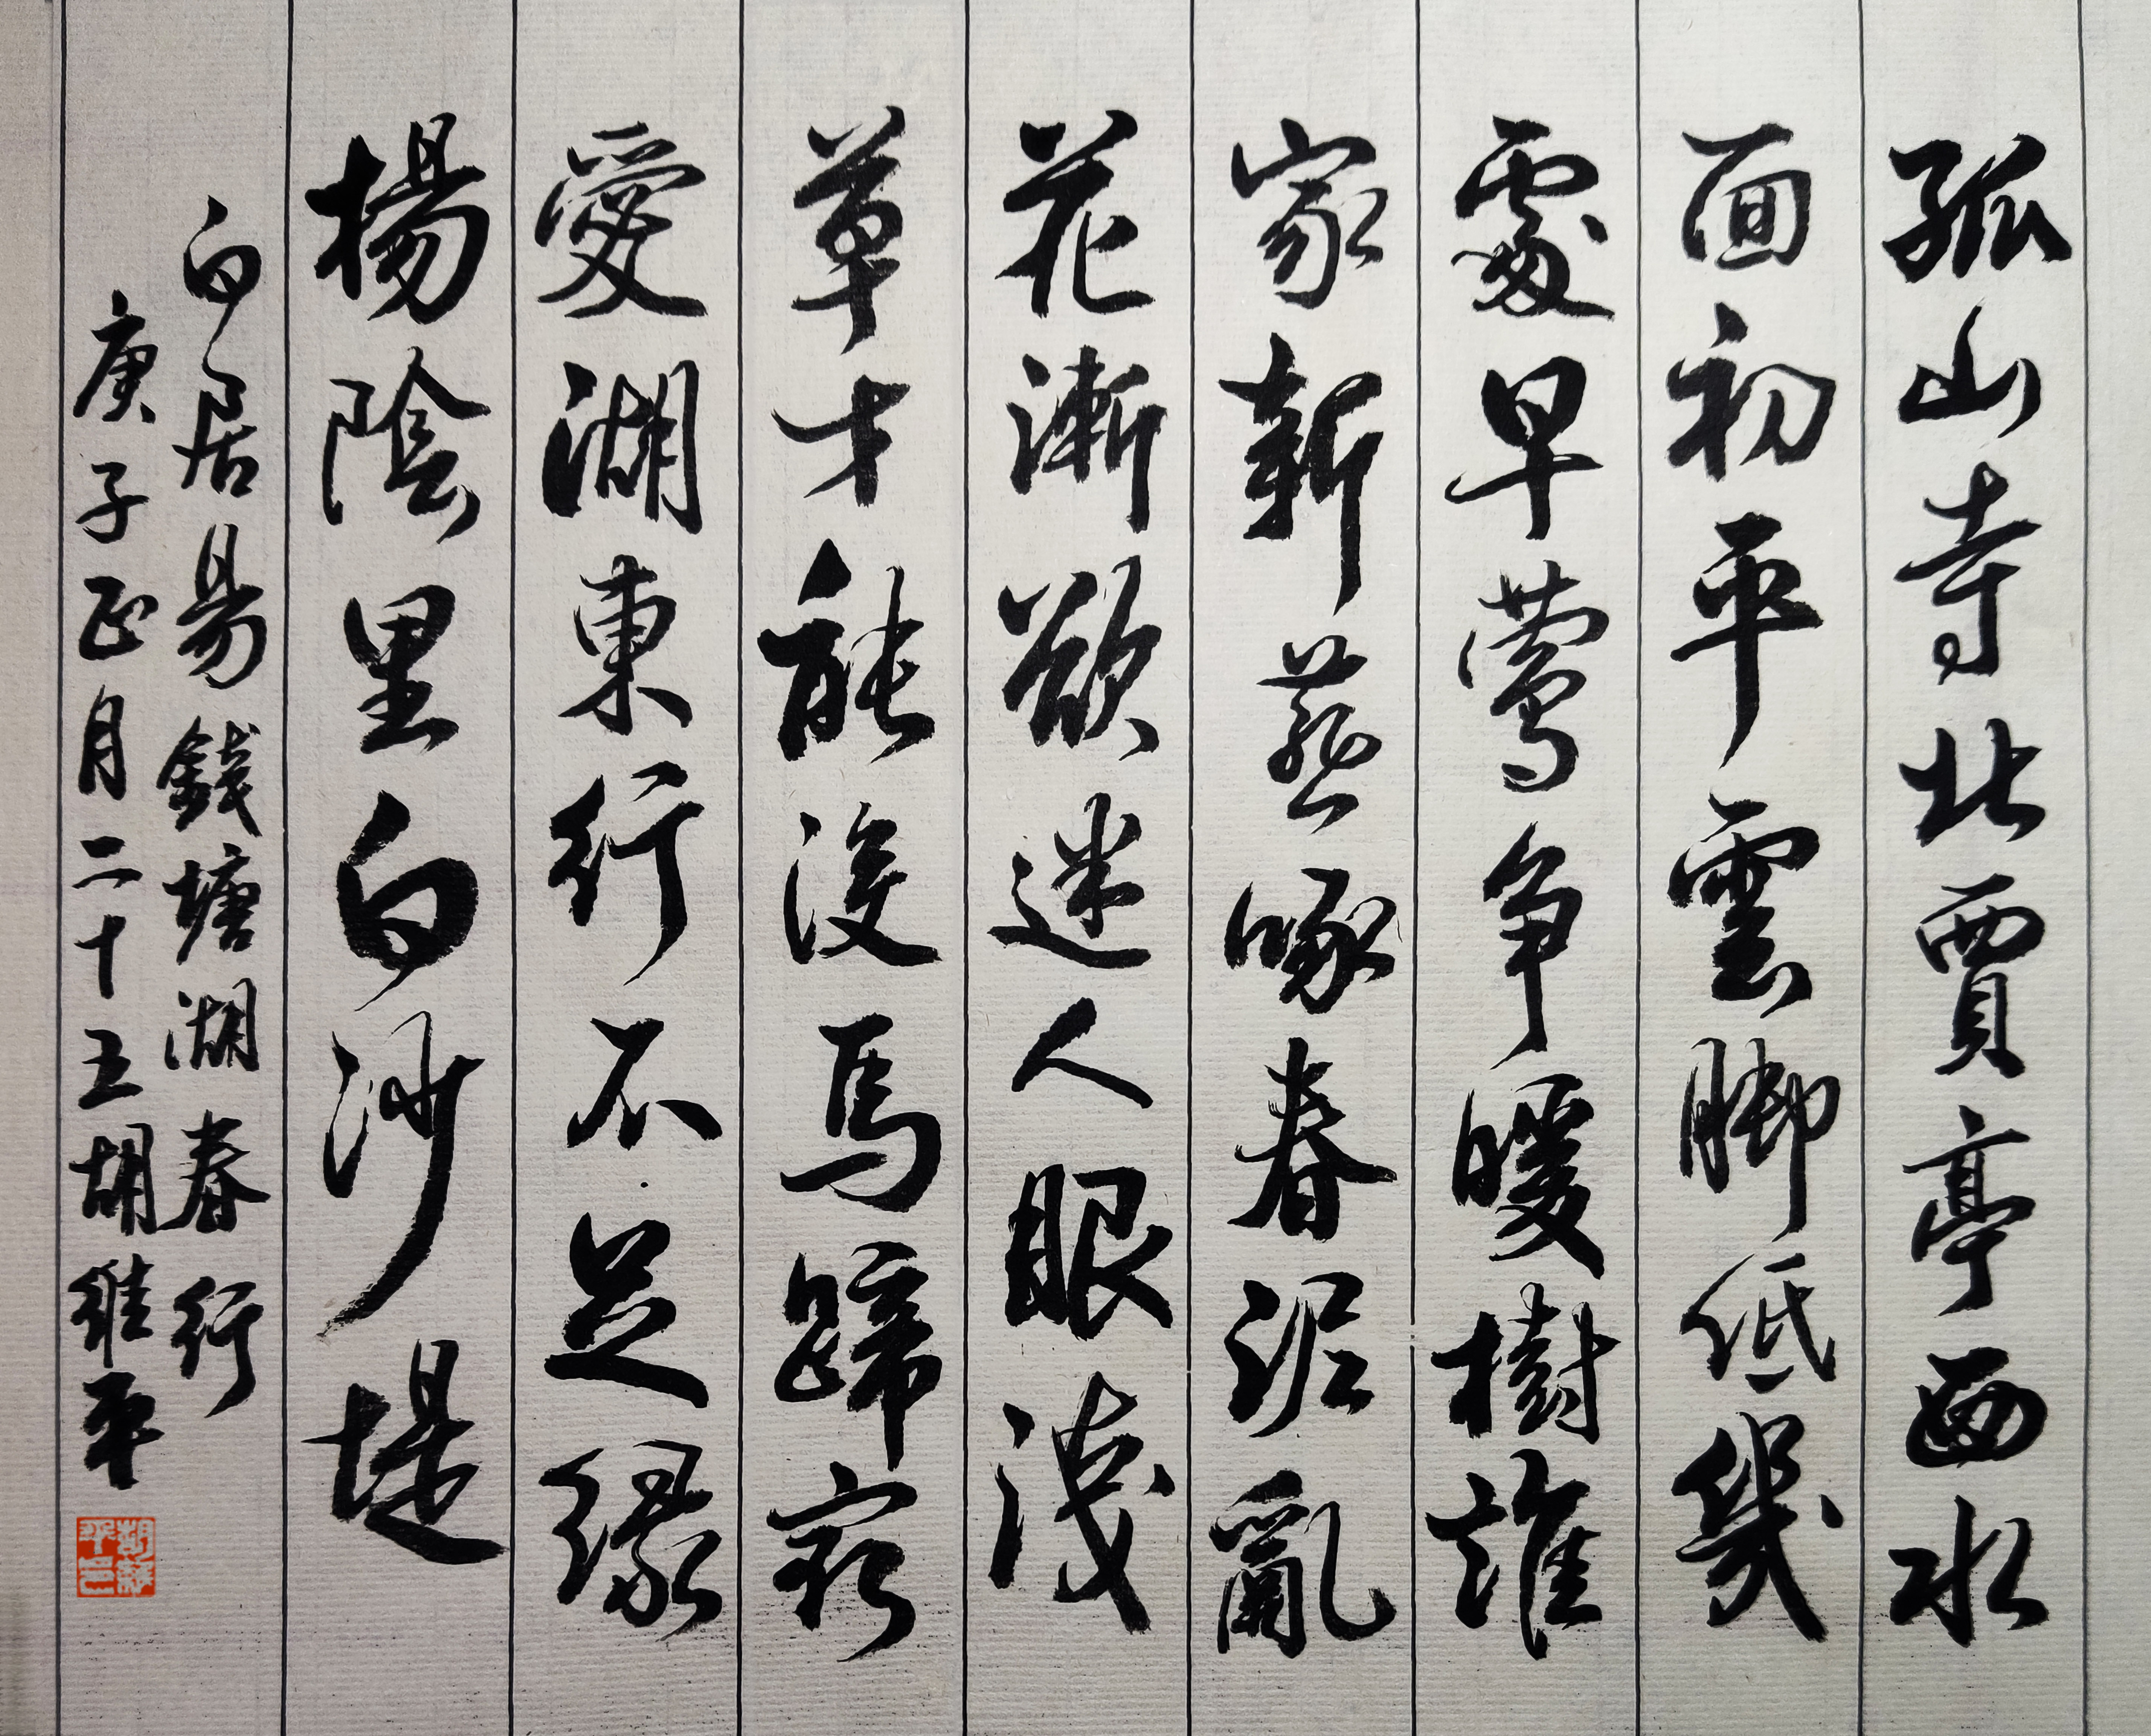 孤山寺北賈亭西水
面初平雲脚低幾
處早鶯争暖樹誰
家新燕啄春泥亂
花漸欲迷人眼淺
草才能没馬蹄最
愛湖東行不足緑
楊陰里白沙堤
白居易錢塘湖春行
庚子正月二十五胡維平
胡維平印